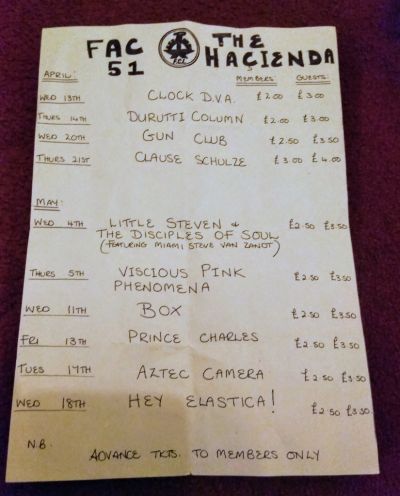 FAC 51 THE HACIENDA
F.C.L
APRIL: MEMBERS: GUESTS:
WED 13TH CLOCK D.V.A. £2.00 £3.00
THURS 14TH DURUTTI COLUMN £2.00 £3.00
WED 20TH GUN CLUB £2.50 £3.50
THURS 21ST CLAUSE SCHULZE £3.00 £4.00
MAY:
WED 4TH LITTLE STEVEN & £2.50 £3.50
THE DISCIPLES OF SOUL
(FEATURING MIAMI STEVE VAN ZANDT)
THURS 5TH VISCIOUS PINK £2.50 £3.50
PHENOMENA
WED 11TH BOX £2.50 £3.50
FRI 13TH PRINCE CHARLES £2.50 £3.50
TUES 17TH AZTEC CAMERA £2.50 £3.50
WED 18TH HEY ELASTICA! £2.50 £3.50
N.B. ADVANCE TKTS. TO MEMBERS ONLY